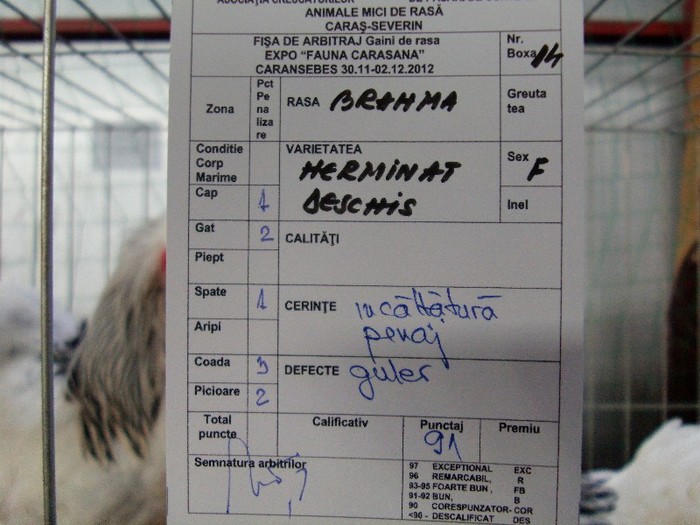 ANIMALE MICI DE RASĂ
CARAŞ-SEVERIN
FIŞA DE ARBITRAJ Gaini de rasa
EXPO “FAUNA CARASANA”
CARANSEBES 30.11-02.12.2012
Nr.
Boxa 14
Zona
Pct
Pe
na
liza
re
RASA BRAHMA
Greuta
tea
Conditie
Corp
Marime
VARIETATEA
HERMINAT
DESCHIS
Sex F
Inel
Cap 1
Gat 2
CALITĂŢI
Piept
Spate 1
CERINŢE incălţătură
penaj
Aripi
Coada 3
DEFECTE guler
Picioare 2
Total
puncte
Calificativ
Punctaj
91
Premiu
Semnatura arbitrilor
97 EXCEPTIONAL EXC
96 REMARCABIL, R
93-95 FOARTE BUN, FB
91-92 BUN, B
90 CORESPUNZATOR- COR
<90 - DESCALIFICAT DES